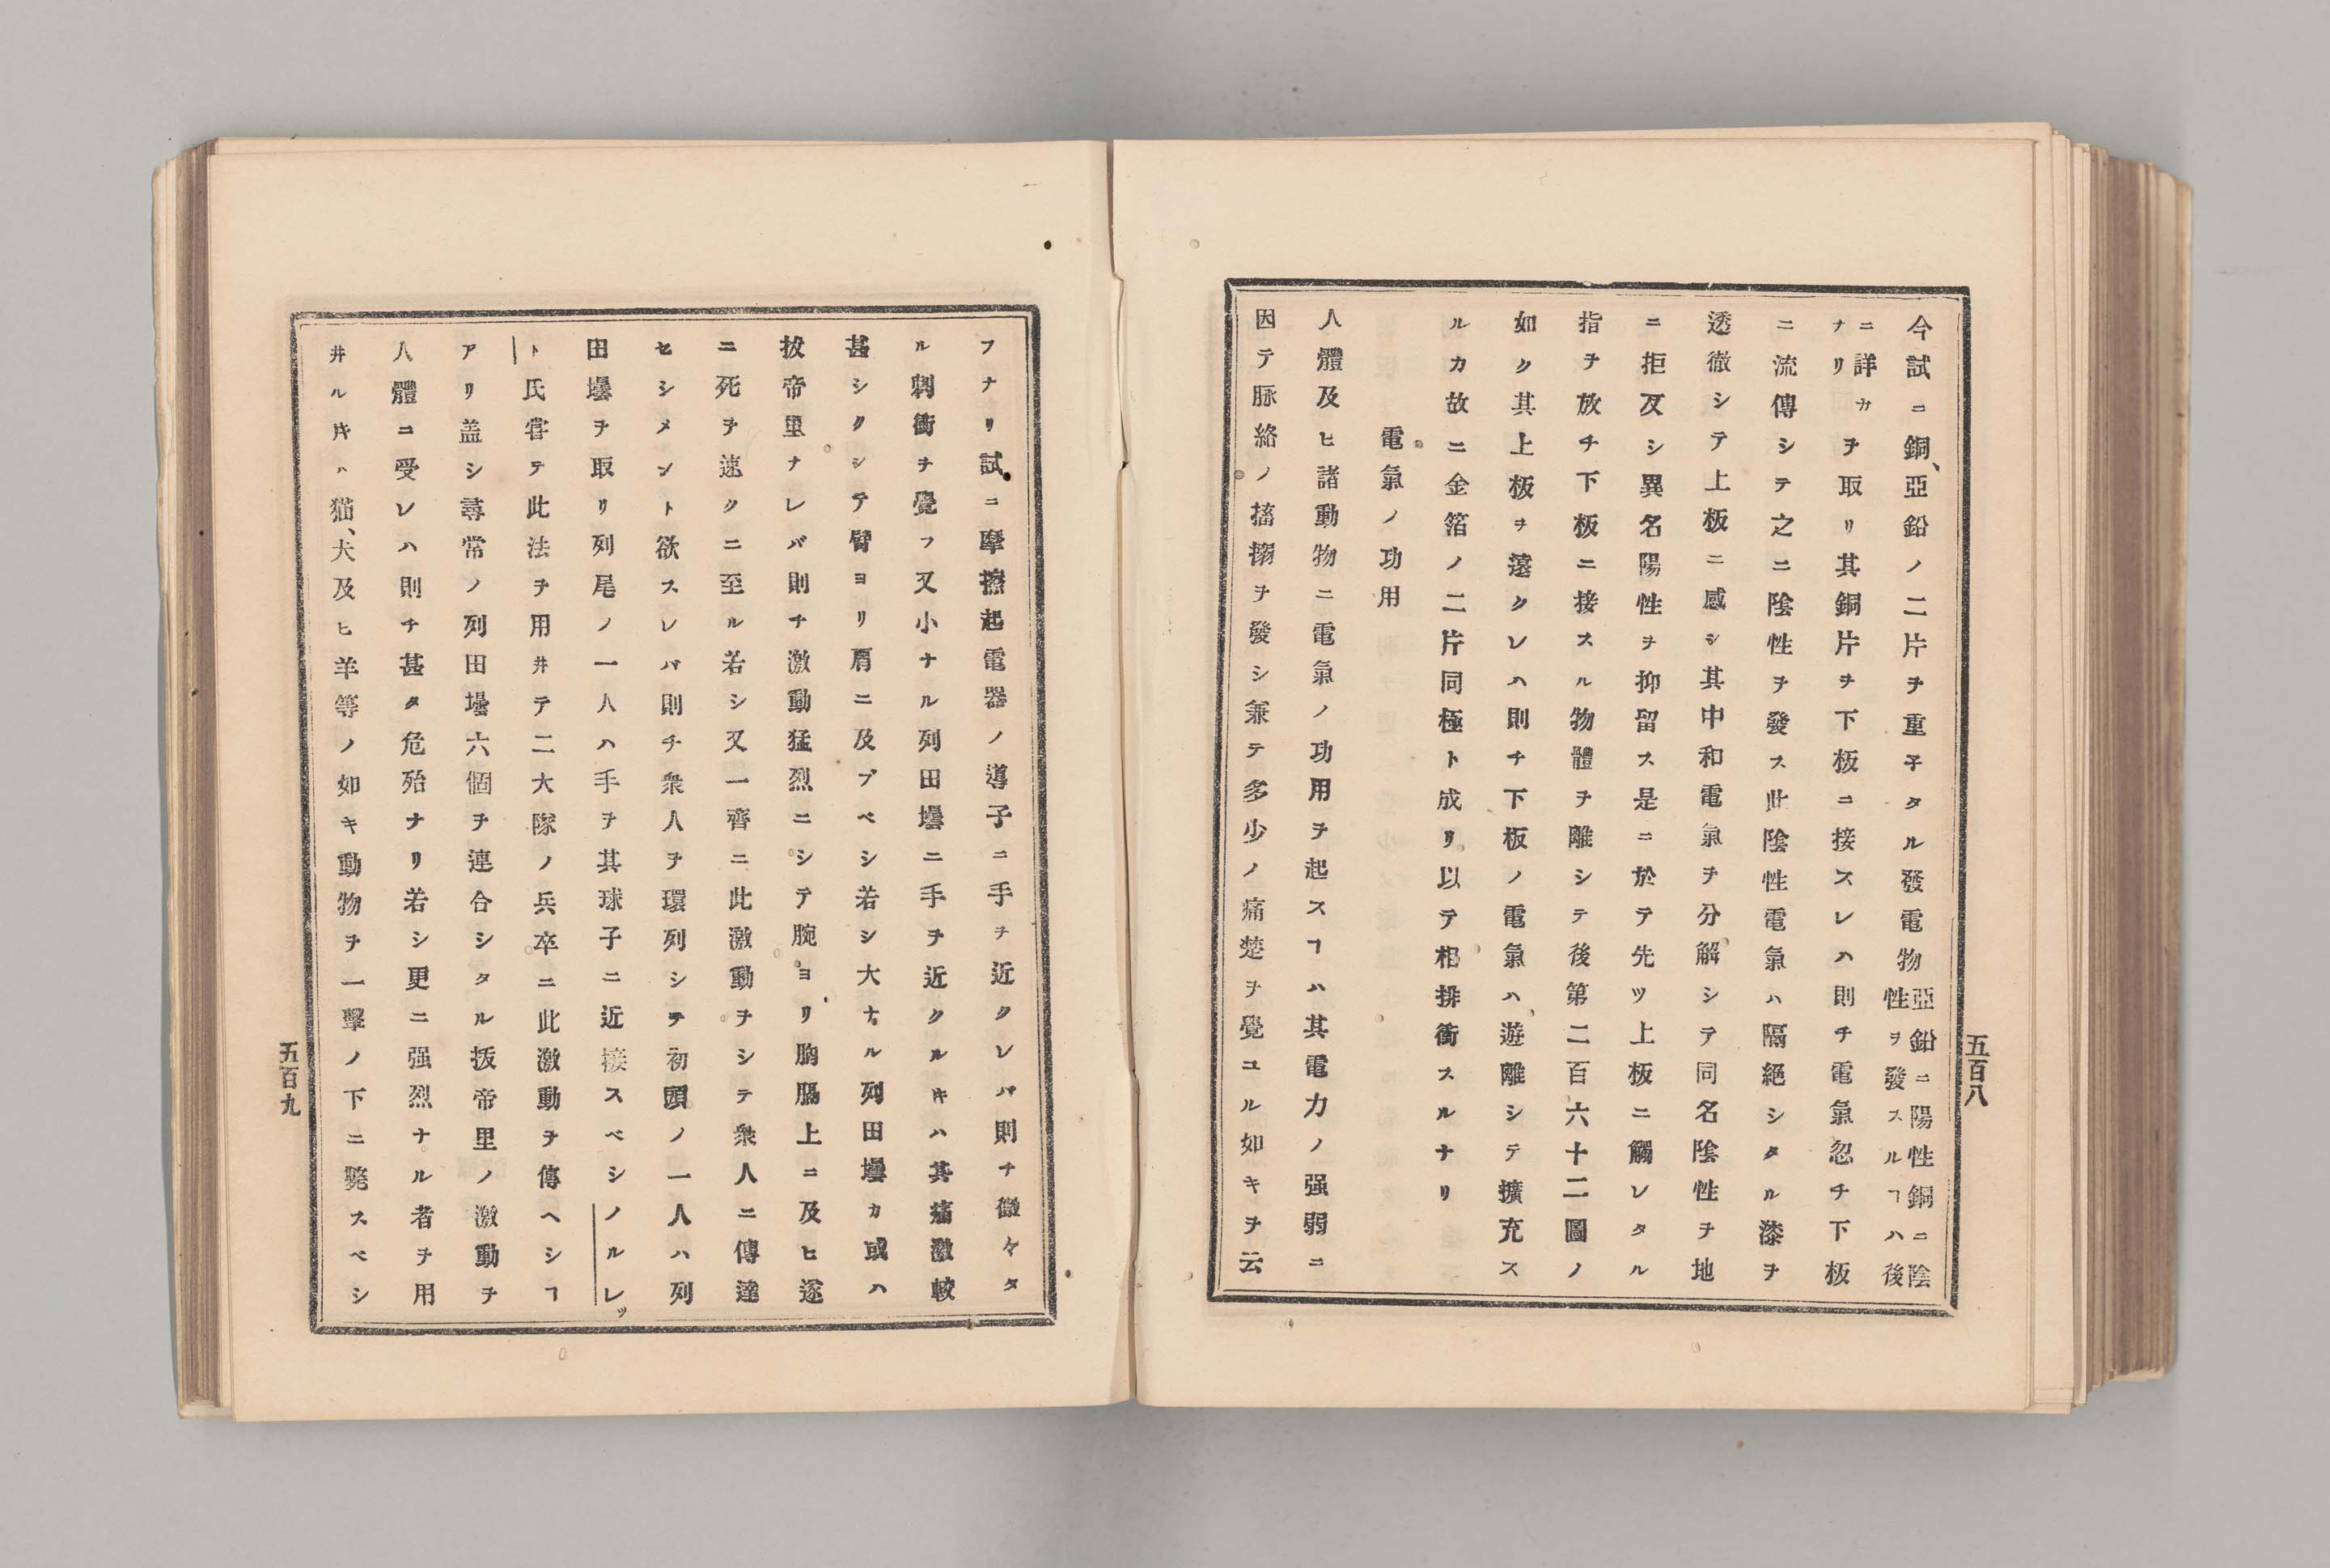 今試ニ銅、亞鉛ノ二片ヲ重子タル發電物亞鉛ニ陽性銅ニ陰性ヲ發スルヿハ後
ニ詳カナリヲ取リ其銅片ヲ下板ニ接スレハ則チ電氣忽チ下板
ニ流傳シテ之ニ陰性ヲ發ス此陰性電氣ハ隔絕シタル漆ヲ
透徹シテ上板ニ感シ其中和電氣ヲ分解シテ同名陰性ヲ地
ニ拒反シ異名陽性ヲ抑留ス是ニ於テ先ツ上板ニ觸レタル
指ヲ放チ下板ニ接スル物體ヲ離シテ後第二百六十二圖ノ
如ク其上板ヲ遠クレハ則チ下板ノ電氣ハ遊離シテ擴充ス
ルカ故ニ金箔ノ二片同極ト成リ以テ相排衝スルナリ
電氣ノ功用
人體及ヒ諸動物ニ電氣ノ功用ヲ起スヿハ其電力ノ强弱ニ
因テ脉絡ノ搐搦ヲ發シ兼テ多少ノ痛楚ヲ覺ユル如キヲ云
五百八
フナリ試ニ摩擦起電器ノ導子ニ手ヲ近クレバ則チ微々タ
ル刺衝ヲ覺フ又小ナル列田壜ニ手ヲ近クルキハ其痛激較
甚シクシテ臂ヨリ肩ニ及ブベシ若シ大ナル列田壜カ或ハ
拔帝里ナレバ則チ激動猛烈ニシテ腕ヨリ胸膈上ニ及ヒ遂
ニ死ヲ速クニ至ル若シ又一齊ニ此激動ヲシテ衆人ニ傳達
セシメント欲スレバ則チ衆人ヲ環列シテ初頭ノ一人ハ列
田壜ヲ取リ列尾ノ一人ハ手ヲ其球子ニ近接スベシノルレッ
ト氏嘗テ此法ヲ用井テ二大隊ノ兵卒ニ此激動ヲ傳ヘシヿ
アリ盖シ尋常ノ列田壜六個ヲ連合シタル拔帝里ノ激動ヲ
人體ニ受レハ則チ甚タ危殆ナリ若シ更ニ强烈ナル者ヲ用
井ルキハ猫、犬及ヒ羊等ノ如キ動物ヲ一擊ノ下ニ斃スベシ
五百九